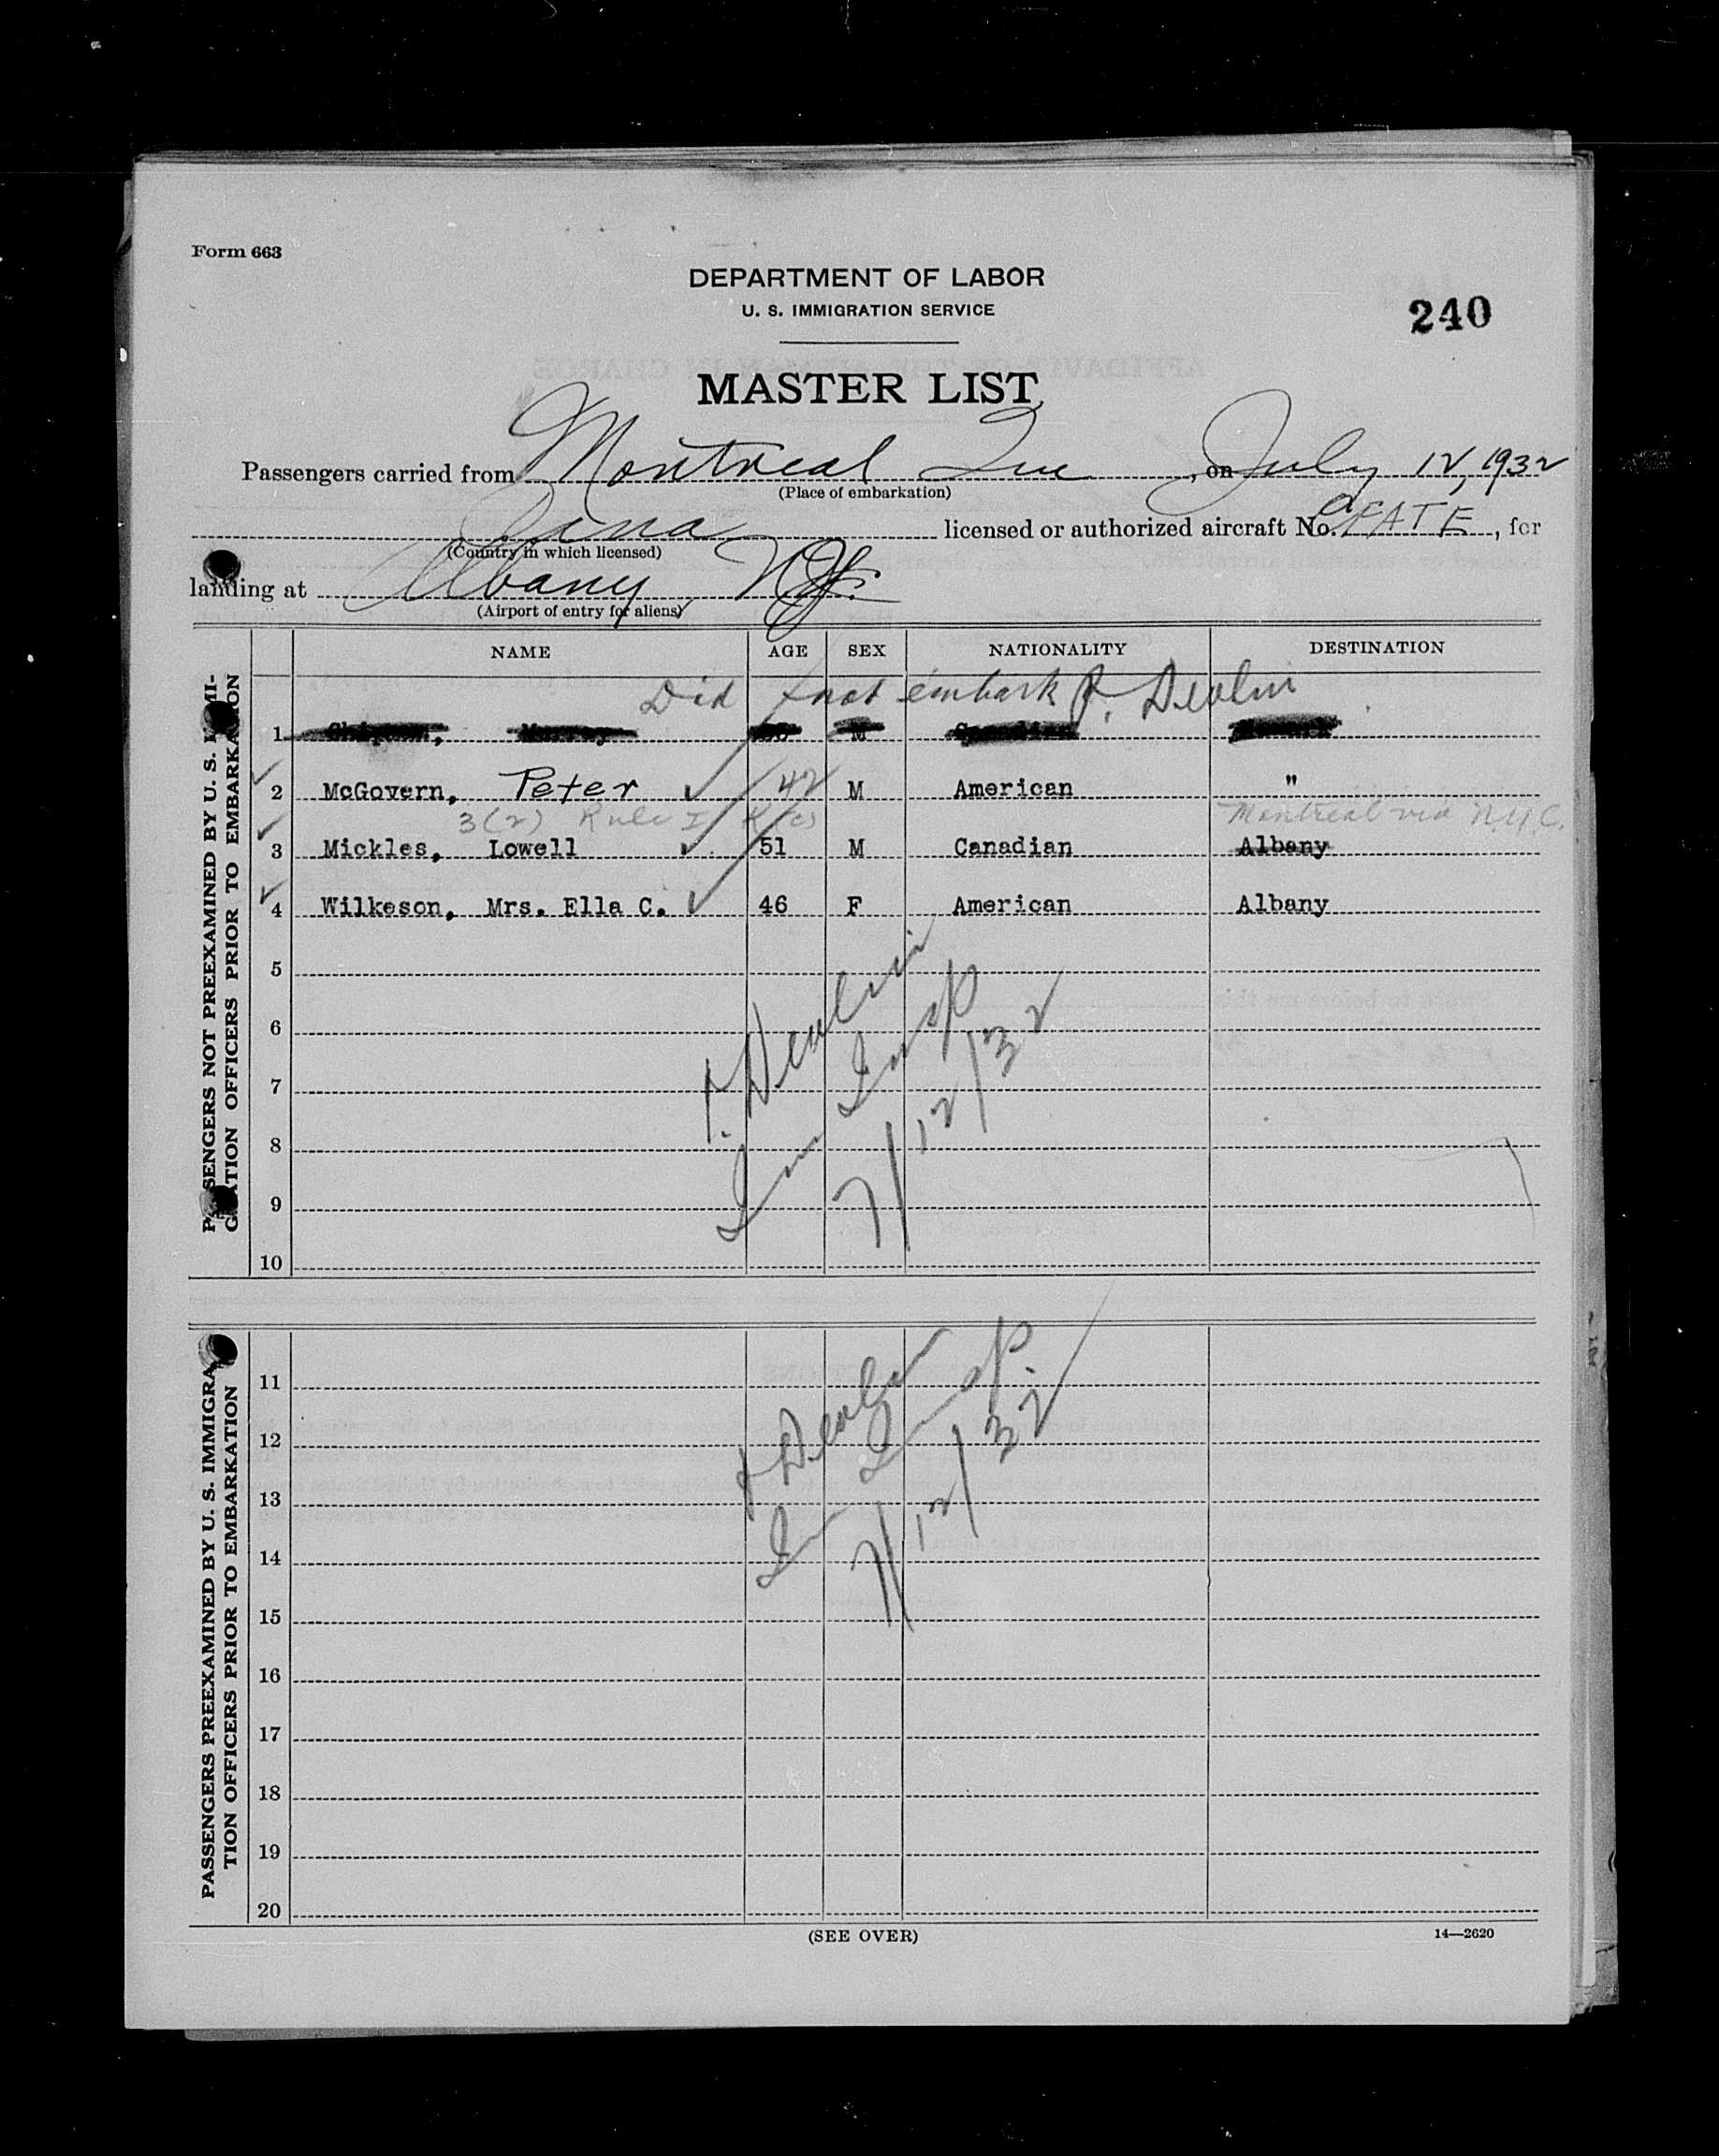 Form 663
DEPARTMENT OF LABOR
U. S. IMMIGRATION SERVICE
240
MASTER LIST
Passengers carried from Montreal Que, on July 12, 1932
(Place of embarkation)
licensed or authorized aircraft No. , for
(Country in which licensed)
landing at Albany N.Y.
(Airport of entry for aliens)
NAME AGE SEX NATIONALITY DESTINATION
Did not embark P. Devlin
1 M Canadian
2 McGovern, Peter ✓ 42 M American "
3(2) Rule I Montreal via N.Y.C.
3 Mickles, Lowell ✓ 51 M Canadian Albany
4 Wilkeson, Mrs. Ella C. ✓ 46 F American Albany
5
6
7
8
9
10
P. Devlin
Imm Insp
7/12/32
PASSENGERS NOT PREEXAMINED BY U. S. IMMI-
GRATION OFFICERS PRIOR TO EMBARKATION
11
12
13
14
15
16
17
18
19
20
P Devlin
Imm Insp.
7/12/32
PASSENGERS PREEXAMINED BY U. S. IMMIGRA-
TION OFFICERS PRIOR TO EMBARKATION
(SEE OVER)
14—2620